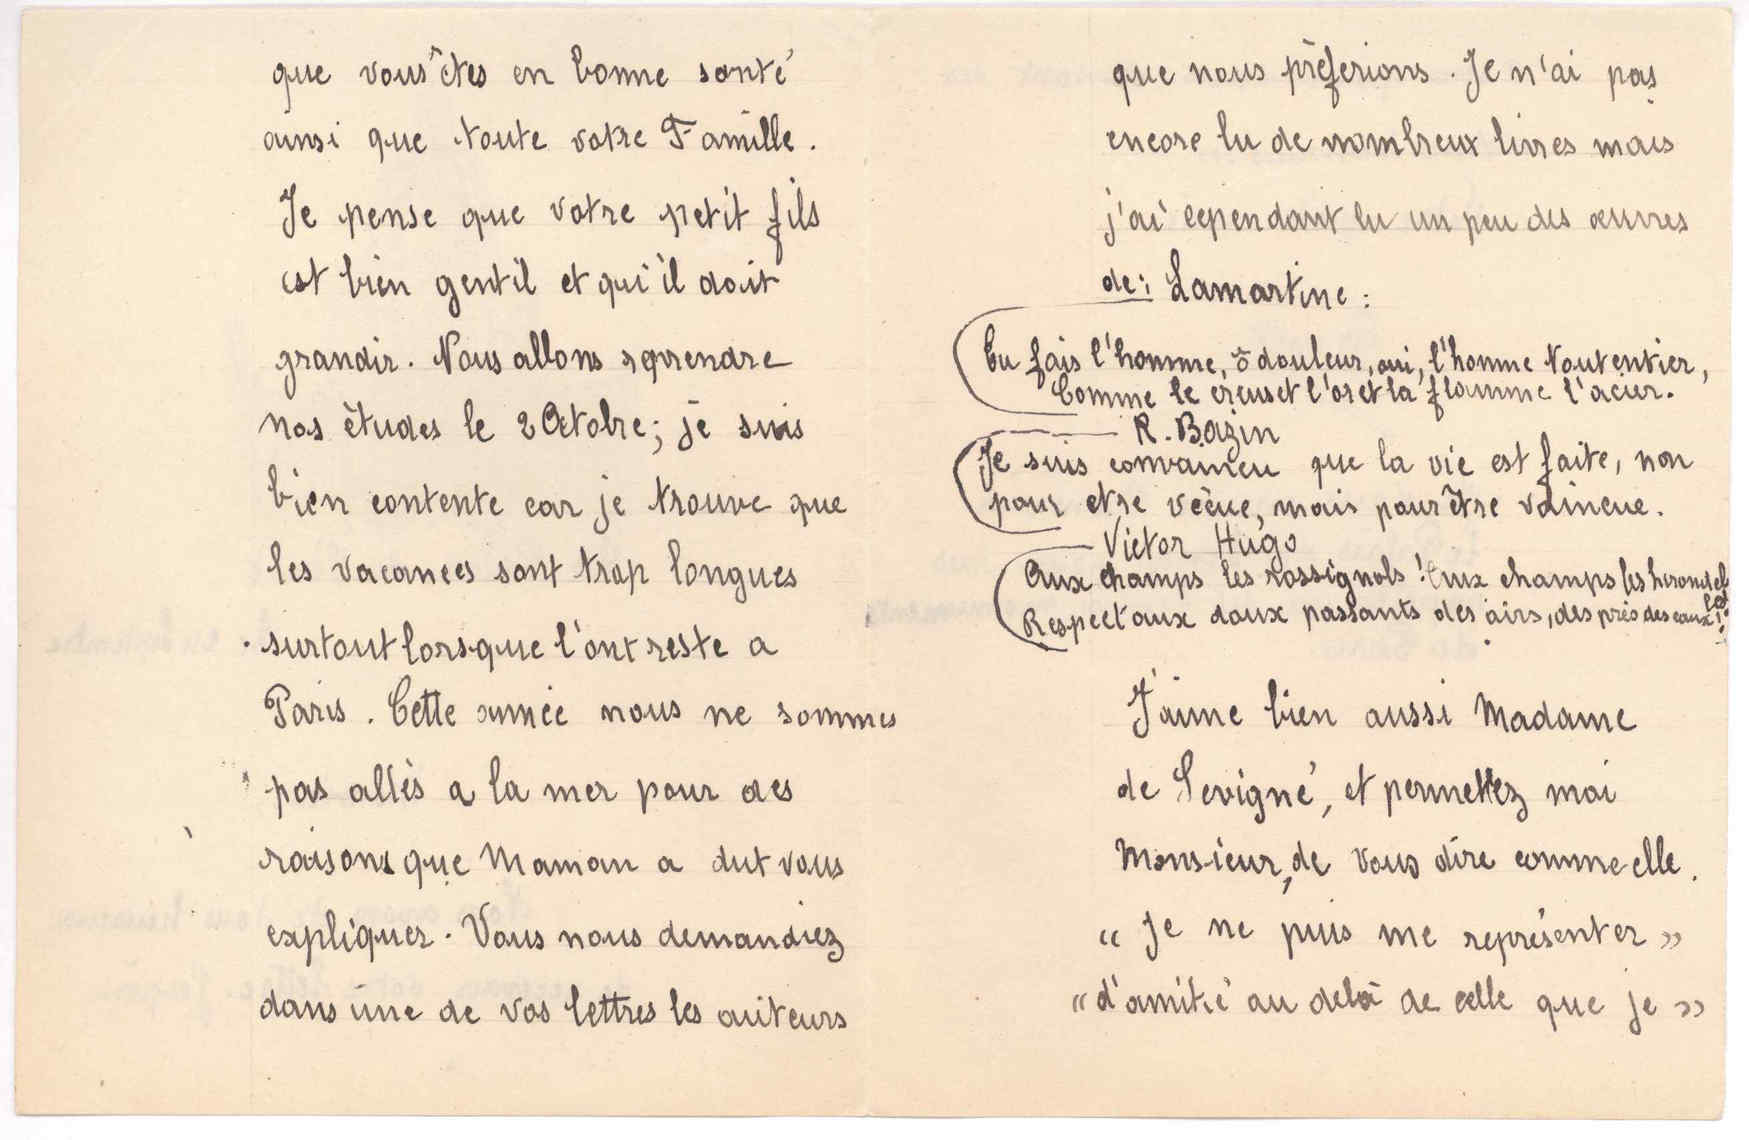 que vous êtes en bonne santé
ainsi que toute votre Famille.
Je pense que votre petit fils
est bien gentil et qu'il doit
grandir. Nous allons reprendre
nos études le 2 Octobre; je suis
bien contente car je trouve que
les vacances sont trop longues
surtout lorsque l'ont reste a
Paris. Cette année nous ne sommes
pas allés a la mer pour des
raisons que Maman a dut vous
expliquer. Vous nous demandiez
dans une de vos lettres les auteurs
que nous préferions. Je n'ai pas
encore lu de nombreux livres mais
j'ai cependant lu un peu des œuvres
de: Lamartine:
Tu fais l'homme, ô douleur, oui, l'homme tout entier,
Comme le creuset l'or et la flamme l'acier.
R. Bazin
Je suis convaincu que la vie est faite, non
pour etre vécue, mais pour être vaincue.
Victor Hugo
Aux champs les rossignols! Aux champs les hirondel
les!
Respect aux doux passants des airs, des près des eaux
J'aime bien aussi Madame
de Sevigné, et permettez moi
Monsieur, de vous dire comme elle.
« Je ne puis me représenter »
« d'amitié au delà de celle que je »